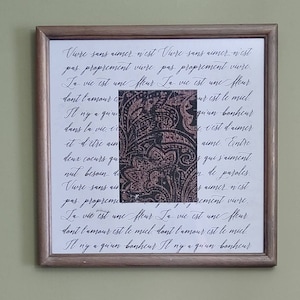 Vivre sans aimer n'est Vivre sans aimer n'est
pas proprement vivre pas proprement vivre
La vie est une fleur La vie est une fleur
dont l'amour est le miel
Il n'y a qu'un bonheur
dans la vie c'est d'aimer
et d'être aimé Entre
deux coeurs qui s'aiment
nul besoin de paroles
Vivre sans n'est
pas proprement vivre
La vie est une fleur La vie est une fleur
dont l'amour est le miel dont l'amour est le miel
Il n'y a qu'un bonheur Il n'y a qu'un bonheur